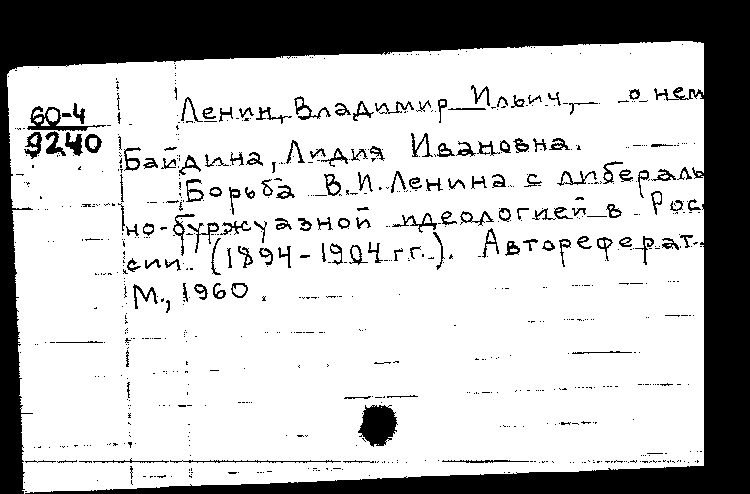 60-4
9240
Ленин, Владимир Ильич, о нем
Байдина, Лидия Ивановна.
Борьба В.И.Ленина с либераль
но-буржуазной идеологией в Рос
сии. (1894-1904 гг.). Автореферат.
М., 1960.